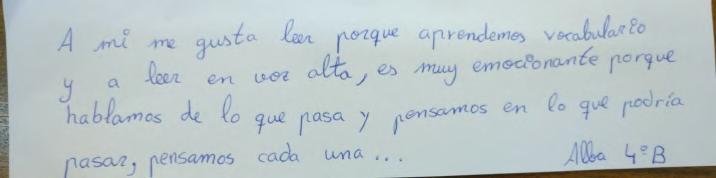 A mi me gusta leer porque aprendemos vocabulario
y a leer en voz alta, es muy emocionante porque
hablamos de lo que pasa y pensamos en lo que podría
pasar, pensamos cada una...
Alba 4ºB